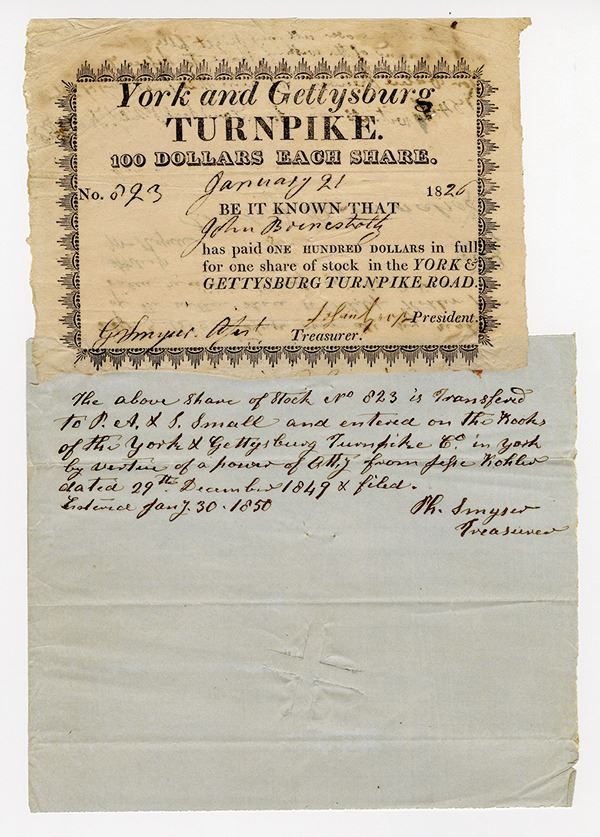 York and Gettysburg
TURNPIKE.
100 DOLLARS EACH SHARE.
No. 823 January 21 1826
BE IT KNOWN THAT
John
has paid ONE HUNDRED DOLLARS in full
for one share of stock in the YORK &
GETTYSBURG TURNPIKE ROAD.
President.
G Smyser. Treasurer.
The above Share of Stock No 823 is Transfered
to P. A. & S. Small and entered on the Books
of the York & Gettysburg Turnpike Co in york
by vertue of a power of Atty from Jesse Kohler
dated 29th December 1849 & filed.
Entered Jany. 30. 1850 Ph. Smyser
Treasurer